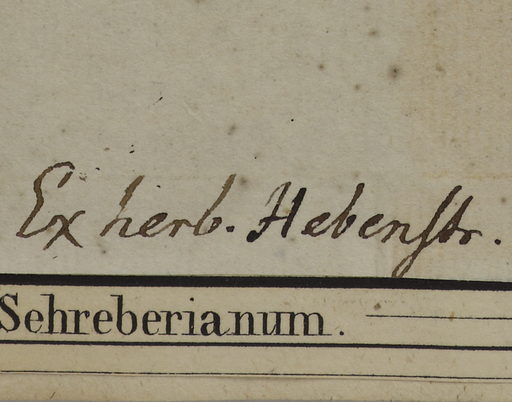 Ex herb. Hebenſtr.
Schreberianum.